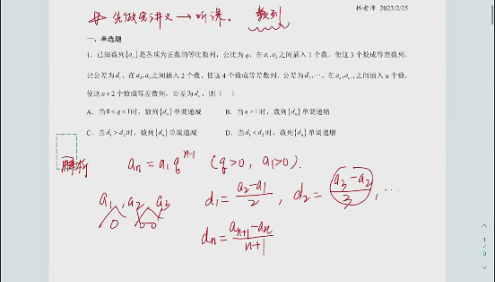 先做完讲义 → 听课. 数列
林老师 2023/2/25
一、单选题
1. 已知数列{aₙ}是各项为正数的等比数列，公比为q，在a₁,a₂之间插入1个数，使这3个数成等差数列，
记公差为d₁，在a₂,a₃之间插入2个数，使这4个数成等差数列，公差为d₂，…，在aₙ,aₙ₊₁之间插入n个数，
使这n+2个数成等差数列，公差为dₙ，则（ ）
A. 当0<q<1时，数列{dₙ}单调递减 B. 当q>1时，数列{dₙ}单调递增
C. 当d₁>d₂时，数列{dₙ}单调递减 D. 当d₁<d₂时，数列{dₙ}单调递增
解析 aₙ = a₁qⁿ⁻¹ (q>0, a₁>0).
a₁, a₂, a₃ d₁ = (a₂-a₁)/2 , d₂ = (a₃-a₂)/3 , ⋯
dₙ = (aₙ₊₁-aₙ)/(n+1)